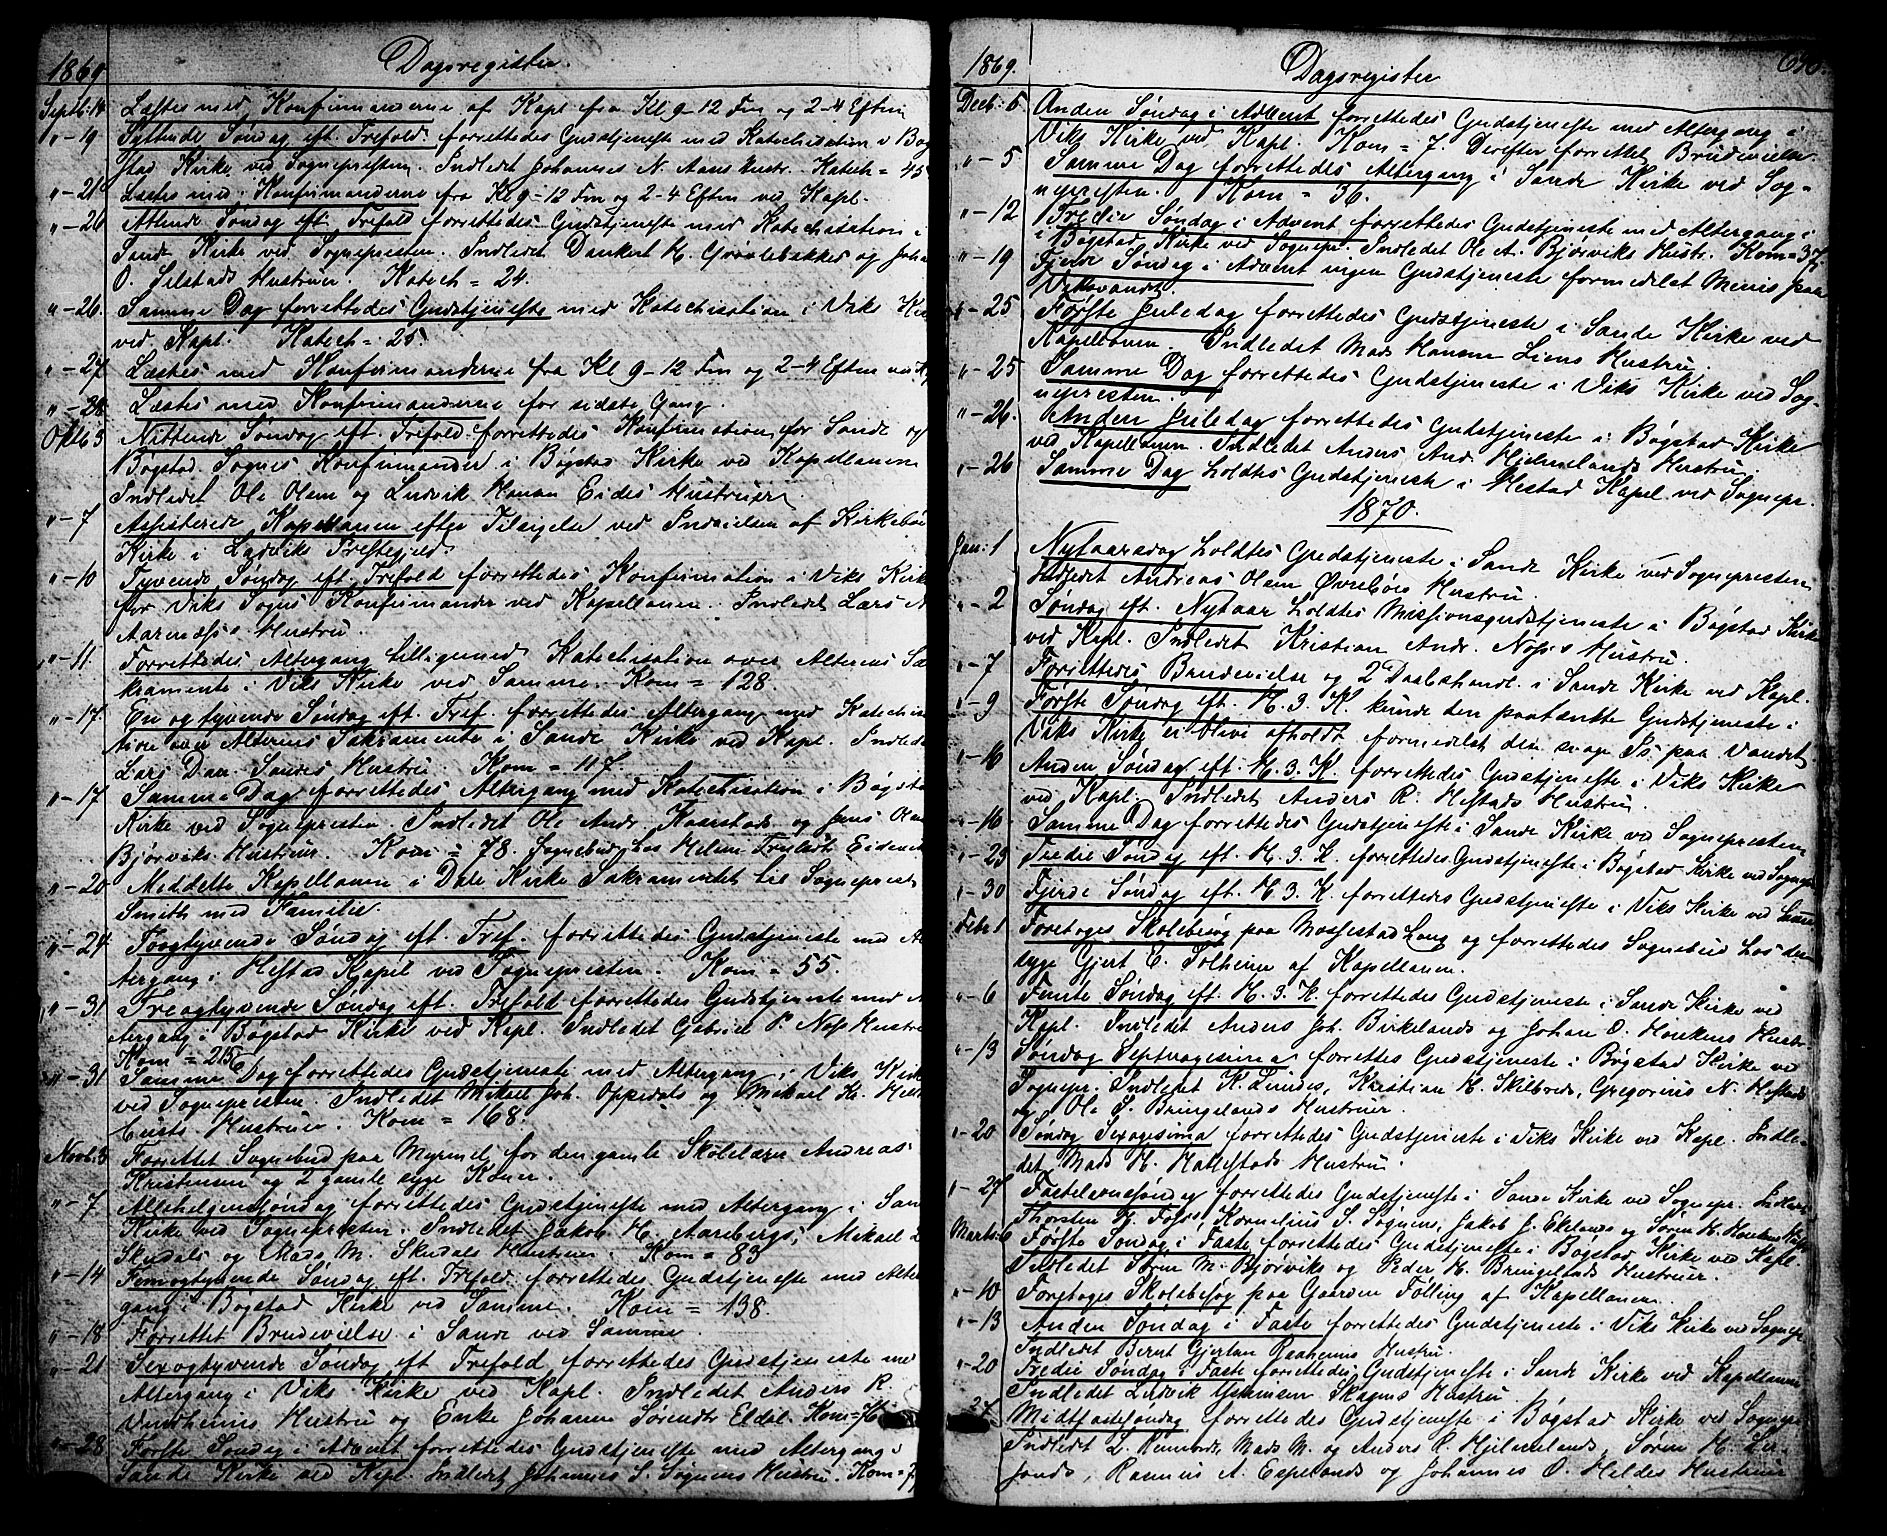 1869 Dagsregister.
Septb: 14 Læstes med Konfirmanderne af Kapl fra Kl 9-12 Fm og 2-4 Eftm
"-19 Syttende Søndag eft. Trefold. forrettedes Gudstjeneste med Katechisation i Bøg
stad Kirke ved Sognepresten. Indledet Johannes N. Aans Hustr. Katech = 45
"-21 Læstes med Konfirmanderne fra Kl 9-12 Fm og 2-4 Eftm ved Kapl.
"-26 Attende Søndag eft. Trefold forrettedes Gudstjeneste med Katechisation i
Sande Kirke ved Sognepresten. Indledet Dankert H. og Joha
O. Hustruer. Katech = 24.
"-26. Samme Dag forrettedes Gudstjeneste med Katechisation i Viks Kir
ved Kapl. Katech = 25
"-27 Læstes med Konfirmanderne fra Kl 9-12 Fm og 2-4 Eftm
"-28 Læstes med Konfirmanderne for sidste Gang.
Oktb 3 Nittende Søndag eft. Trefold. forrettedes Konfirmation for Sande og
Bøgstad Sognes Konfirmander i Bøgstad Kirke ved Kapellanen
Indledet Ole Olsen og Ludvik Hansen Eides Hustruer
"-7 Assisterede Kapellanen efter Tilsigelse ved Indvielsen af Kirkebø
Kirke i Ladviks Prestegjeld
"-10 Tyvende Søndag eft Trefold forrettedes Konfirmation i Viks Kirk
for Viks Sogns Konfirmander ved Kapellanen. Indledet Lars
Hustru.
"-11. Forrettedes Altergang tilligemed Katechisation over Alterens Sa
kramente i Viks Kirke ved Samme. Kom = 128.
"-17. En og tyvende Søndag eft. Tref. forrettedes Altergang med Katechisa
tion over Alterens Sakramente i Sande Kirke ved Kapl. Indlede
Lars Dan. Sandes Hustru Kom = 117
"-17 Samme Dag forrettedes Altergang med Katechisation i Bøgsta
Kirke ved Sognepresten Indledet Ole Andr. Kaarstads og Jens Olsen
Bjørviks Hustruer. Kom = 78. Sognebud hos
"-20 Meddelte Kapellanen i Dale Kirke Sakramentet til Sogneprest
Smith med Familie.
"-24. Toogtyvende Søndag eft. Tref. forrettedes Gudstjeneste med Al
tergang i Hestad Kapel ved Sognepresten. Kom = 55.
"-31 Treogtyvende Søndag eft. Trefold forrettedes Gudstjeneste med A
tergang i Bøgstad Kirke ved Kapl. Indledet Gabriel P. Næss Hustru
Kom = 215
"-31 Samme Dag forrettedes Gudstjeneste med Altergang i Viks Kirke
ved Sognepresten. Indledet Mikael Joh. Oppedals og Mikael
Hustruer. Kom = 168.
Novb: 3 Forrettet Sognebud paa Myrmel for den gamle Skolelærer Andreas
Kristensen og 2 gamle syge Koner.
"-7 Allehelgenssøndag forrettedes Gudstjeneste med Altergang i San
Kirke ved Sognepresten. Indledet Jakob H. Aarbergs, Mikael
Skudals og Mads M. Skudals Hustruer. Kom = 83
"-14 Femogtyvende Søndag eft. Trefold forrettedes Gudstjeneste med Alter
gang i Bøgstad Kirke ved Samme. Kom = 138.
"-18 Forrettet Brudevielse i Sande ved Samme.
"-21 Sexogtyvende Søndag eft Trefold forrettedes Gudstjeneste med
Altergang i Viks Kirke ved Kapl. Indledet Anders R.
Hustru og Enke Johanne Eldal. Kom =
"-28 Første Søndag i Advent forrettedes Gudstjeneste med Altergang i
Sande Kirke ved Kapl. Indledet Johannes S. Sognens Hustru. Kom =
1869. Dagsregister
Decb: 5 Anden Søndag i Advent forrettedes Gudstjeneste med Altergang i
Viks Kirke ved Kapl. Kom = 7. Derefter forrettet Brudevielse
"-5 Samme Dag forrettedes Altergang i Sande Kirke ved Sog=
nepresten. Kom = 36.
"-12 Tredie Søndag i Advent forrettedes Gudstjeneste med Altergang i
Bøgstad Kirke ved Sognepr. Indledet Ole A. Bjørviks Hustr. Kom = 37.
"-19 Fjerde Søndag i Advent ingen Gudstjeneste formedelst Menis paa
Viksvandet.
"-25 Første Juledag forrettedes Gudstjeneste i Sande Kirke ved
Kapellanen. Indledet Mads Hansen Liens Hustru.
"-25 Samme Dag forrettedes Gudstjeneste i Viks Kirke ved Sog-
nepresten.
"-26. Anden Juledag forrettedes Gudstjeneste i Bøgstad Kirke
ved Kapellanen. Indledet Anders And. Hjelmelands Hustru.
"-26 Samme Dag holdtes Gudstjeneste i Hestad Kapel ved Sognepr.
1870.
Jan: 1 Nytaarsdag holdtes Gudstjeneste i Sande Kirke ved Sognepresten
Indledet Andreas Olsen Øvrebøes Hustru.
"-2 Søndag eft. Nytaar holdtes Missionsgudstjeneste i Bøgstad Kirke
ved Kapl. Indledet Kristian Andr. Næss Hustru.
"-7 Forrettedes Brudevielse og 2 Daabshandl. i Sande Kirke ved Kapl.
"-9 Første Søndag eft. H. 3. K. kunde den paatænkte Gudstjeneste i
Viks Kirke ei blive afholdt formedelst den svage Is paa Vandet.
"-16 Anden Søndag eft. H. 3. K. forrettedes Gudstjeneste i Viks Kirke
ved Kapl. Indledet Anders R. Hestads Hustru.
"-16. Samme Dag forrettedes Gudstjeneste i Sande Kirke ved Sognepresten
"-23 Tredie Søndag eft. H. 3. K. forrettedes Gudstjeneste i Bøgstad Kirke ved Sognepr
"-30 Fjerde Søndag eft. H. 3. K. forrettedes Gudstjeneste i Viks Kirke ved Samme
Febr 1 Foretoges Skolebesøg paa Mosfestad Lang og forrettedes Sognebud hos den
syge Gjert E. Solheim af Kapellanen.
"-6 Femte Søndag eft. H. 3. K. forrettedes Gudstjeneste i Sande Kirke ved
Kapl. Indledet Anders Joh. Birkelands og Johan O. Hustr.
"-13 Søndag Septuagesima forrettes Gudstjeneste i Bøgstad Kirke ved
Sognepr. Indledet K. Lundes, Kristian H. Skilbreds, Gregorius N. Hestads
og Ole S. Bringelands Hustruer.
"-20 Søndag Sexagesima forrettedes Gudstjeneste i Viks Kirke ved Kapl. Indle-
det Mads H. Hallestads Hustru.
"-27 Fastelavnssøndag forrettedes Gudstjeneste i Sande Kirke ved Sognepr. Indledet
Thorsten Foss, Kornelius S. Sognens, Jakob J. Ekelands og Søren H. Hustr
Marts: 6 Første Søndag i Faste forrettedes Gudstjeneste i Bøgstad Kirke ved Kapl.
Indledet Søren M. Bjørviks og Peder H. Bringelands Hustruer.
"-10 Foretoges Skolebesøg paa Gaarden Følling af Kapellanen.
"-13 Anden Søndag i Faste forrettedes Gudstjeneste i Viks Kirke ved Sognepr
Indledet Bernt Gjertsen Hustru.
"-20 Tredie Søndag i Faste forrettedes Gudstjeneste i Sande Kirke ved Kapellanen
Indledet Ludvik Hustru
27 Midtfastesøndag forrettedes Gudstjeneste i Bøgstad Kirke ved Sognepr
Indledet L. Mads M. og Anders R. Hjelmelands, Søren H.
Rasmus A. Espelands og Johannes O. Hildes Hustruer